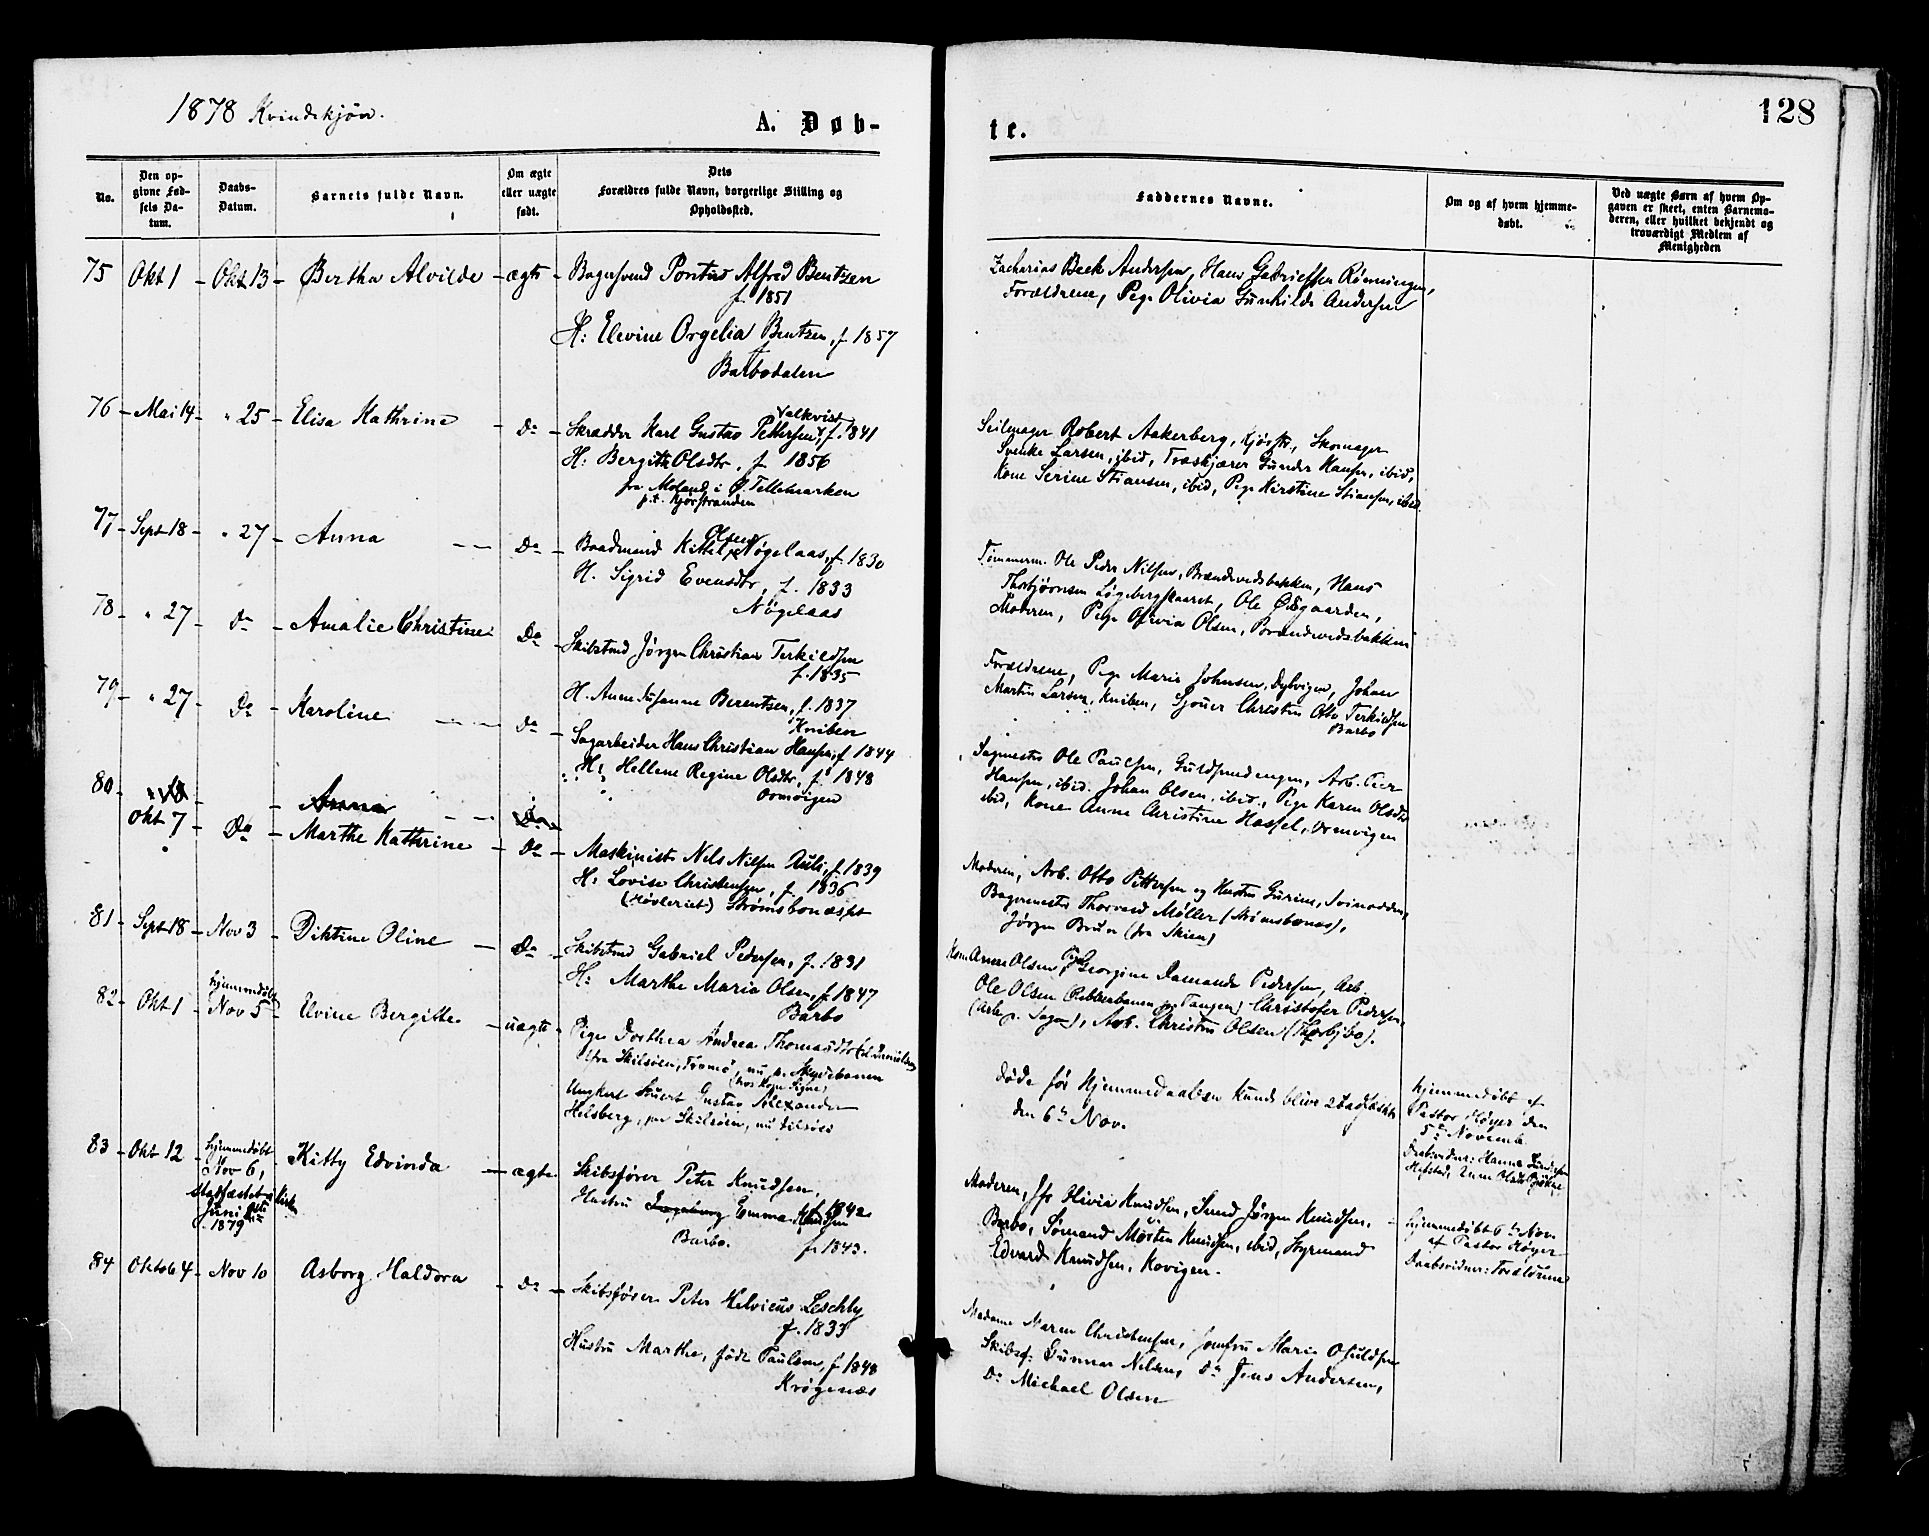 1878 Kvindekjøn.
A. Døb-
te.
128
No.
Den op-
givne Fød-
sels Da-
tum.
Daabs-
Datum.
Barnets fulde Navn.
Om ægte
eller uægte
født.
Dets
Forældres fulde Navn, borgerlige Stilling og
Opholdssted.
Faddernes Navne.
Om og af hvem hjemme-
døbt.
Ved uægte Børn af hvem Op-
gaven er skeet, enten Barnemo-
deren, eller hvilket bekjendt og
troværdigt Medlem af
Menigheden
75 Okt 1 - Okt 13 - Bertha Alvilde - ægte - Bagersvend Pontus Alfred Bentzen
f. 1851
H: Elevine Orgelia Bentzen, f 1857
Barbodalen
Zacharias Beck Andersen, Hans Gabrielsen Rønningen,
Forældrene, Pige Olivia Gunhilde Andersen
76 - Mai 14 - " 25 - Elisa Kathrine - Do - Skrædder Karl Gustav Pettersen Valkvist, f. 1841
H: Bergith Olsdtr, f 1856
fra Moland i Ø. Tellemarken
p.t. Kjørstranden
Seilmager Robert Aakerberg, Kjørstr, Skomager
Svenke Larsen, ibid, Træskjærer Gunder Hansen, ibid,
Kone Serine Stiansen, ibid, Pige Kirstine Stiansen, ibid
77 - Sept 18 - " 27 - Anna - Do - Baadmand Kittil Olsen Nøgelaas, f. 1830
H. Sigrid Evensdtr, f. 1833
Nøgelaas
Tømmerm. Ole Peder Nilsen, Brændevidsbakken, Hans
Thorbjørnsen Løgebergskaaret, Ole Ødegaarden,
Moderen, Pige Olivia Olsen, Brændevidsbakken
78 - " 27 - Do - Amalie Christine - Do - Skibstmd Jørgen Christian Terkildsen
f. 1835
H. Anne Susanne Berentsen, f. 1837
Kniben
Forældrene, Pige Marie Johnsen, Dybvigen, Johan
Martin Larsen, Kniben, Sjouer Christin Otto Terkildsen
Barbo
79 - " 27 - Do - Karoline - Do - Sagarbeider Hans Christian Hansen, f 1844
H: Hellene Regine Olsdtr, f 1848
Ormvigen
Sagmester Ole Paulsen, Guldsmedengen, Arb. Peer
Hansen, ibid. Johan Olsen, ibid., Pige Karen Olsdtr
ibid, Kone Anne Christine Hassel, Ormvigen
80 - Anna
Okt 7 - Do - Marthe Kathrine - Do - Maskinist Nels Nilsen Auli, f. 1839
H: Lovise Christensen, f. 1836
(Høvleriet) Strømsbonæsset
Moderen, Arb. Otto Pettersen og Hustru Gurine, Svinodden,
Bagermester Thorvald Møller (Strømsbonæs),
Jørgen Bruun (fra Skien)
81 - Sept 18 - Nov 3 - Diktine Oline - Do - Skibstmd Gabriel Pedersen, f. 1831
H: Marthe Maria Olsen, f 1847
Barbo
Kone Anne Olsen, Pige Georgine Damande Pedersen, Arb.
Ole Olsen (Rebberbanen paa Tangen) Christofer Pedersen
(Arb p. Sagen), Arb. Christen Olsen (Thorbjbo).
82 - Okt 1 - hjemmedøbt
Nov 5 - Elvine Bergitte - uægte - Pige Dorthea Andrea Thomasdtr
fra Skilsøen, Tromø, nu p. Skydebanen
(hos Kone Signe)
Ungkarl Stuert Gustav Alexander
Helsberg, paa Skilsøen, nu tilsøes
døde før Hjemmedaaben kunde blive stadfæstet
den 6te Nov.
hjemmedøbt af
Pastor Høyer den
5te Novemb.
83 - Okt 12 - hjemmedøbt
Nov 6,
stadfæstet i Kirken
Juni
1879
Kitty Edvinda - ægte - Skibsfører Peter Knudsen,
f. 1842
Hustru Ingeborg Emma Knudsen
Barbo. f. 1843.
Moderen, Jfr Olivia Knudsen, Smd Jørgen Knudsen,
Barbo, Sømand Morten Knudsen, ibid, Styrmand
Edvard Knudsen, Kovigen.
hjemmedøbt 6te Nov.
af Pastor Høyer
Daabsvidner: Forældrene
84 Oktob 4 - Nov 10 Asborg Haldora - Do - Skibsfører Peter Helvicus Leschly
f. 1833
Hustru Marthe, født Paulsen, f 1848
Krøgenæs
Madame Maren Christensen, Jomfru Marie Osuldsen
Skibsf. Gunnar Nilsen, Do Jens Andersen,
Do Michael Olsen